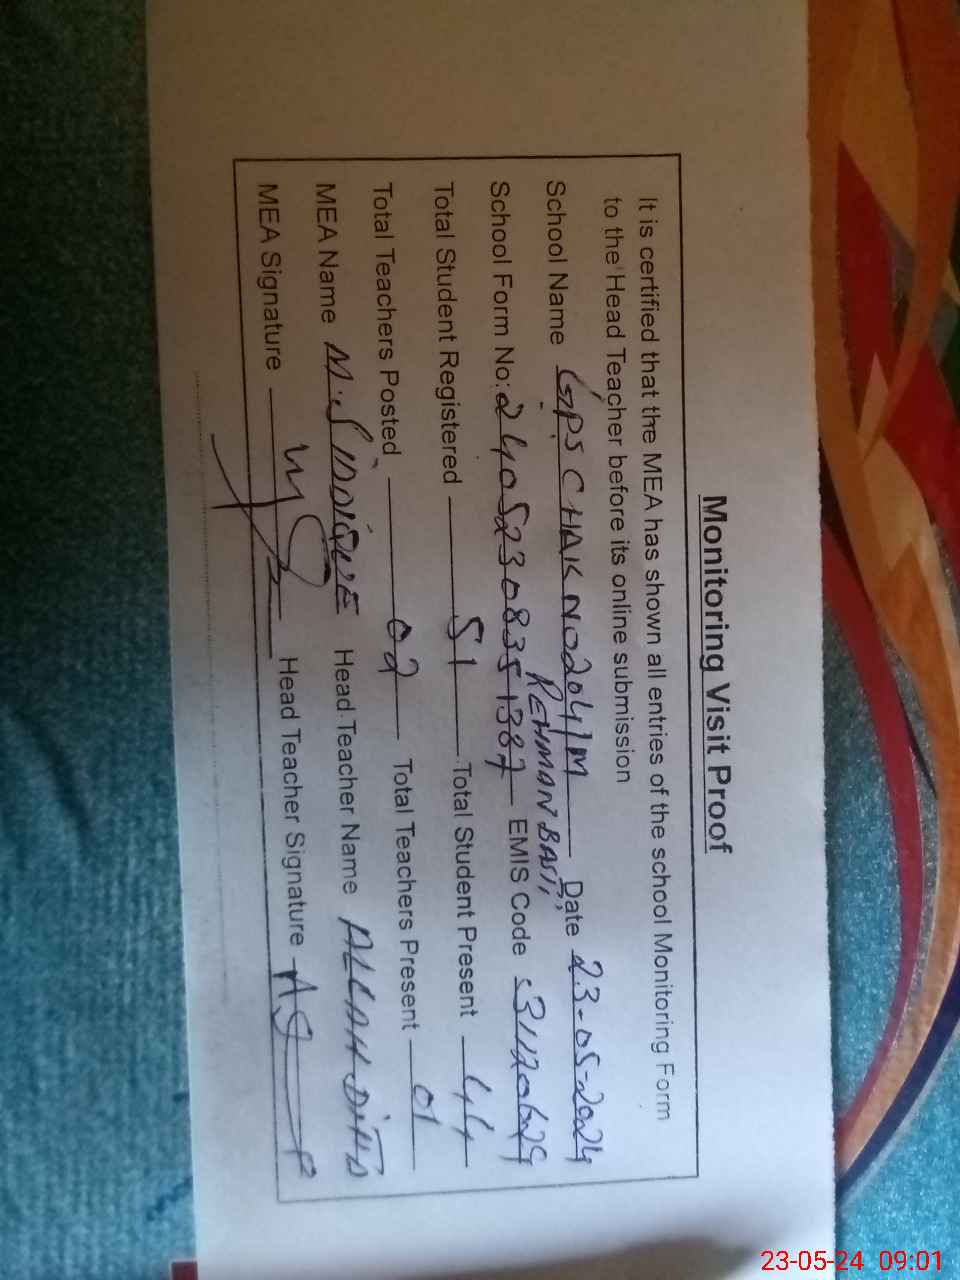 Monitoring Visit Proof
It is certified that the MEA has shown all entries of the school Monitoring Form
to the Head Teacher before its online submission
School Name GPS CHAK NO 204/M Date 23-05-2024
REHMAN BASTI
School Form No: 24052308351387 EMIS Code 31120629
Total Student Registered 51 Total Student Present 44
Total Teachers Posted 02 Total Teachers Present 01
MEA Name M.SIDDIQUE Head Teacher Name ALLAH DITTA
MEA Signature Head Teacher Signature
23-05-24 09:01